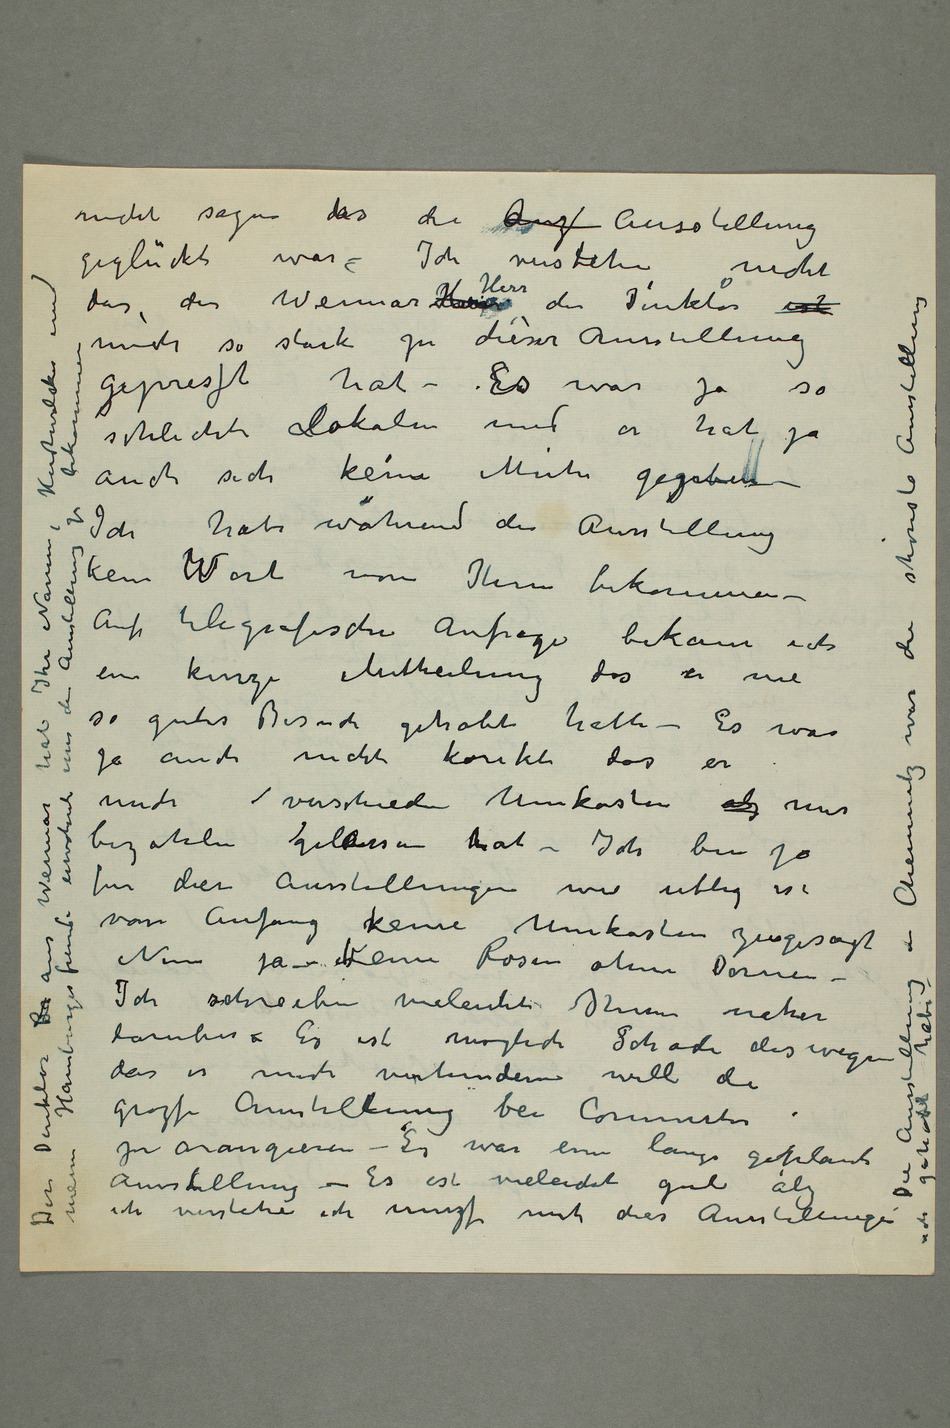 nicht sagen das die Ausz Ausstellung
geglückt war – Ich verstehe nicht
das, der Weimar Herr der Direktor ist
mich so stark zu dieser Ausstellung
gepreszt hat – Es war ja so
schlechte Lokalen und er hat ja
auch sich keine Mühe gegeben –
Ich habe während der Ausstellung
kein Wort von Ihm bekommen –
Auf telegrafische Anfrage bekam ich
eine kurze Mittheilung das er nie
so guter Besuch gehabt hatte – Es war
ja auch nicht korekt das er
mich verschieden Unkosten als mir
bezahlen gelassen hat – Ich bin ja
für diese Ausstellungen wie üblig ist
vom Anfang keine Unkosten zugesagt
Nun ja – Keine Rosen ohne Dornen –
Ich schreiben vieleicht Ihnen näher
daruber – Es ist möglich Schade deswegen
das er mich verhindern will die
grozse Ausstellung bei Commeter
zu arangieren – Es war eine lange geplante
Ausstellung – Es ist vieleicht gut alz
ich verstehe ich musz mit dies Ausstellungen
Der Direktor aus Weimar hat Ihre Namen, Kestnerselsk und
mein Hamburger freund benutzt um die Ausstellung zu bekommen
Die Ausstellung in Chemnitz war die schönste Ausstellung
ich gehabt habe –